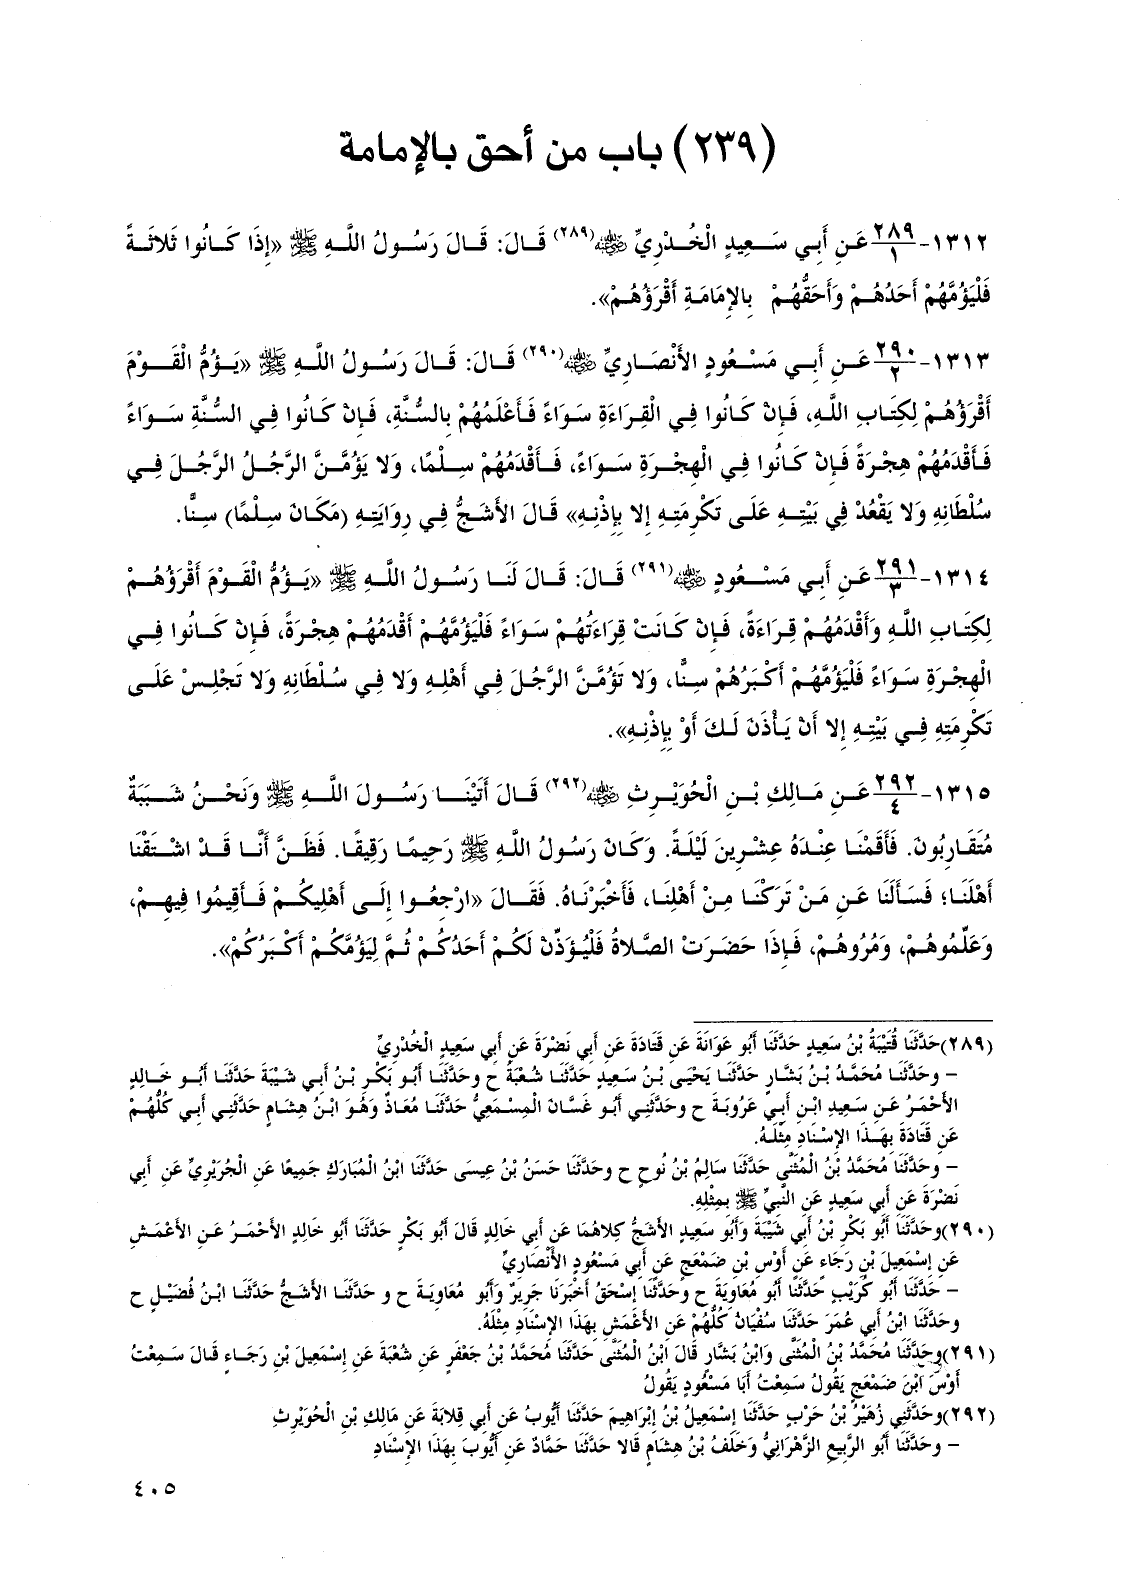 (٢٣٩) باب من أحق بالإمامة
١٣١٢- ٢٨٩/١ عَنِ أَبِي سَعِيدٍ الْخُدْرِيِّ ﷺ(٢٨٩) قَالَ: قَالَ رَسُولُ اللَّهِ ﷺ «إِذَا كَانُوا ثَلاثَةً
فَلْيَؤُمَّهُمْ أَحَدُهُمْ وَأَحَقُّهُمْ بِالإِمَامَةِ أَقْرَؤُهُمْ».
١٣١٣- ٢٩٠/٢ عَنِ أَبِي مَسْعُودٍ الأَنْصَارِيِّ ﷺ(٢٩٠) قَالَ: قَالَ رَسُولُ اللَّهِ ﷺ «يَؤُمُّ الْقَوْمَ
أَقْرَؤُهُمْ لِكِتَابِ اللَّهِ، فَإِنْ كَانُوا فِي الْقِرَاءَةِ سَوَاءً فَأَعْلَمُهُمْ بِالسُّنَّةِ، فَإِنْ كَانُوا فِي السُّنَّةِ سَوَاءً
فَأَقْدَمُهُمْ هِجْرَةً فَإِنْ كَانُوا فِي الْهِجْرَةِ سَوَاءً، فَأَقْدَمُهُمْ سِلْمًا، وَلا يَؤُمَّنَّ الرَّجُلُ الرَّجُلَ فِي
سُلْطَانِهِ وَلا يَقْعُدْ فِي بَيْتِهِ عَلَى تَكْرِمَتِهِ إِلا بِإِذْنِهِ» قَالَ الأَشَجُّ فِي رِوَايَتِهِ (مَكَانَ سِلْمًا) سِنًّا.
١٣١٤- ٢٩١/٣ عَنِ أَبِي مَسْعُودٍ ﷺ(٢٩١) قَالَ: قَالَ لَنَا رَسُولُ اللَّهِ ﷺ «يَؤُمُّ الْقَوْمَ أَقْرَؤُهُمْ
لِكِتَابِ اللَّهِ وَأَقْدَمُهُمْ قِرَاءَةً، فَإِنْ كَانَتْ قِرَاءَتُهُمْ سَوَاءً فَلْيَؤُمَّهُمْ أَقْدَمُهُمْ هِجْرَةً، فَإِنْ كَانُوا فِي
الْهِجْرَةِ سَوَاءً فَلْيَؤُمَّهُمْ أَكْبَرُهُمْ سِنًّا، وَلا تَؤُمَّنَّ الرَّجُلَ فِي أَهْلِهِ وَلا فِي سُلْطَانِهِ وَلا تَجْلِسْ عَلَى
تَكْرِمَتِهِ فِي بَيْتِهِ إِلا أَنْ يَأْذَنَ لَكَ أَوْ بِإِذْنِهِ».
١٣١٥- ٢٩٢/٤ عَنِ مَالِكِ بْنِ الْحُوَيْرِثِ ﷺ(٢٩٢) قَالَ أَتَيْنَا رَسُولَ اللَّهِ ﷺ وَنَحْنُ شَبَبَةٌ
مُتَقَارِبُونَ. فَأَقَمْنَا عِنْدَهُ عِشْرِينَ لَيْلَةً. وَكَانَ رَسُولُ اللَّهِ ﷺ رَحِيمًا رَقِيقًا. فَظَنَّ أَنَّا قَدْ اشْتَقْنَا
أَهْلَنَا؛ فَسَأَلَنَا عَنِ مَنْ تَرَكْنَا مِنْ أَهْلِنَا، فَأَخْبَرْنَاهُ. فَقَالَ «ارْجِعُوا إِلَى أَهْلِيكُمْ فَأَقِيمُوا فِيهِمْ،
وَعَلِّمُوهُمْ، وَمُرُوهُمْ، فَإِذَا حَضَرَتْ الصَّلاةُ فَلْيُؤَذِّنْ لَكُمْ أَحَدُكُمْ ثُمَّ لِيَؤُمَّكُمْ أَكْبَرُكُمْ».
(٢٨٩)حَدَّثَنَا قُتَيْبَةُ بْنُ سَعِيدٍ حَدَّثَنَا أَبُو عَوَانَةَ عَنِ قَتَادَةَ عَنِ أَبِي نَضْرَةَ عَنِ أَبِي سَعِيدٍ الْخُدْرِيِّ
– وحَدَّثَنَا مُحَمَّدُ بْنُ بَشَّارٍ حَدَّثَنَا يَحْيَى بْنُ سَعِيدٍ حَدَّثَنَا شُعْبَةُ ح وحَدَّثَنَا أَبُو بَكْرِ بْنُ أَبِي شَيْبَةَ حَدَّثَنَا أَبُو خَالِدٍ
الأَحْمَرُ عَنِ سَعِيدِ ابْنِ أَبِي عَرُوبَةَ ح وحَدَّثَنِي أَبُو غَسَّانَ الْمِسْمَعِيُّ حَدَّثَنَا مُعَاذٌ وَهُوَ ابْنُ هِشَامٍ حَدَّثَنِي أَبِي كُلُّهُمْ
عَنِ قَتَادَةَ بِهَذَا الإِسْنَادِ مِثْلَهُ.
– وحَدَّثَنَا مُحَمَّدُ بْنُ الْمُثَنَّى حَدَّثَنَا سَالِمُ بْنُ نُوحٍ ح وحَدَّثَنَا حَسَنُ بْنُ عِيسَى حَدَّثَنَا ابْنُ الْمُبَارَكِ جَمِيعًا عَنِ الْجُرَيْرِيِّ عَنِ أَبِي
نَضْرَةَ عَنِ أَبِي سَعِيدٍ عَنِ النَّبِيِّ ﷺ بِمِثْلِهِ.
(٢٩٠)وحَدَّثَنَا أَبُو بَكْرِ بْنُ أَبِي شَيْبَةَ وَأَبُو سَعِيدٍ الأَشَجُّ كِلاهُمَا عَنِ أَبِي خَالِدٍ قَالَ أَبُو بَكْرٍ حَدَّثَنَا أَبُو خَالِدٍ الأَحْمَرُ عَنِ الأَعْمَشِ
عَنِ إِسْمَعِيلَ بْنِ رَجَاءٍ عَنِ أَوْسِ بْنِ ضَمْعَجٍ عَنِ أَبِي مَسْعُودٍ الأَنْصَارِيِّ
– حَدَّثَنَا أَبُو كُرَيْبٍ حَدَّثَنَا أَبُو مُعَاوِيَةَ ح وحَدَّثَنَا إِسْحَقُ أَخْبَرَنَا جَرِيرٌ وَأَبُو مُعَاوِيَةَ ح و حَدَّثَنَا الأَشَجُّ حَدَّثَنَا ابْنُ فُضَيْلٍ ح
وحَدَّثَنَا ابْنُ أَبِي عُمَرَ حَدَّثَنَا سُفْيَانُ كُلُّهُمْ عَنِ الأَعْمَشِ بِهَذَا الإِسْنَادِ مِثْلَهُ.
(٢٩١)وحَدَّثَنَا مُحَمَّدُ بْنُ الْمُثَنَّى وَابْنُ بَشَّارٍ قَالَ ابْنُ الْمُثَنَّى حَدَّثَنَا مُحَمَّدُ بْنُ جَعْفَرٍ عَنِ شُعْبَةَ عَنِ إِسْمَعِيلَ بْنِ رَجَاءٍ قَالَ سَمِعْتُ
أَوْسَ ابْنَ ضَمْعَجٍ يَقُولُ سَمِعْتُ أَبَا مَسْعُودٍ يَقُولُ
(٢٩٢)وحَدَّثَنِي زُهَيْرُ بْنُ حَرْبٍ حَدَّثَنَا إِسْمَعِيلُ بْنُ إِبْرَاهِيمَ حَدَّثَنَا أَيُّوبُ عَنِ أَبِي قِلابَةَ عَنِ مَالِكِ بْنِ الْحُوَيْرِثِ
– وحَدَّثَنَا أَبُو الرَّبِيعِ الزَّهْرَانِيُّ وَخَلَفُ بْنُ هِشَامٍ قَالا حَدَّثَنَا حَمَّادٌ عَنِ أَيُّوبَ بِهَذَا الإِسْنَادِ
٤٠٥